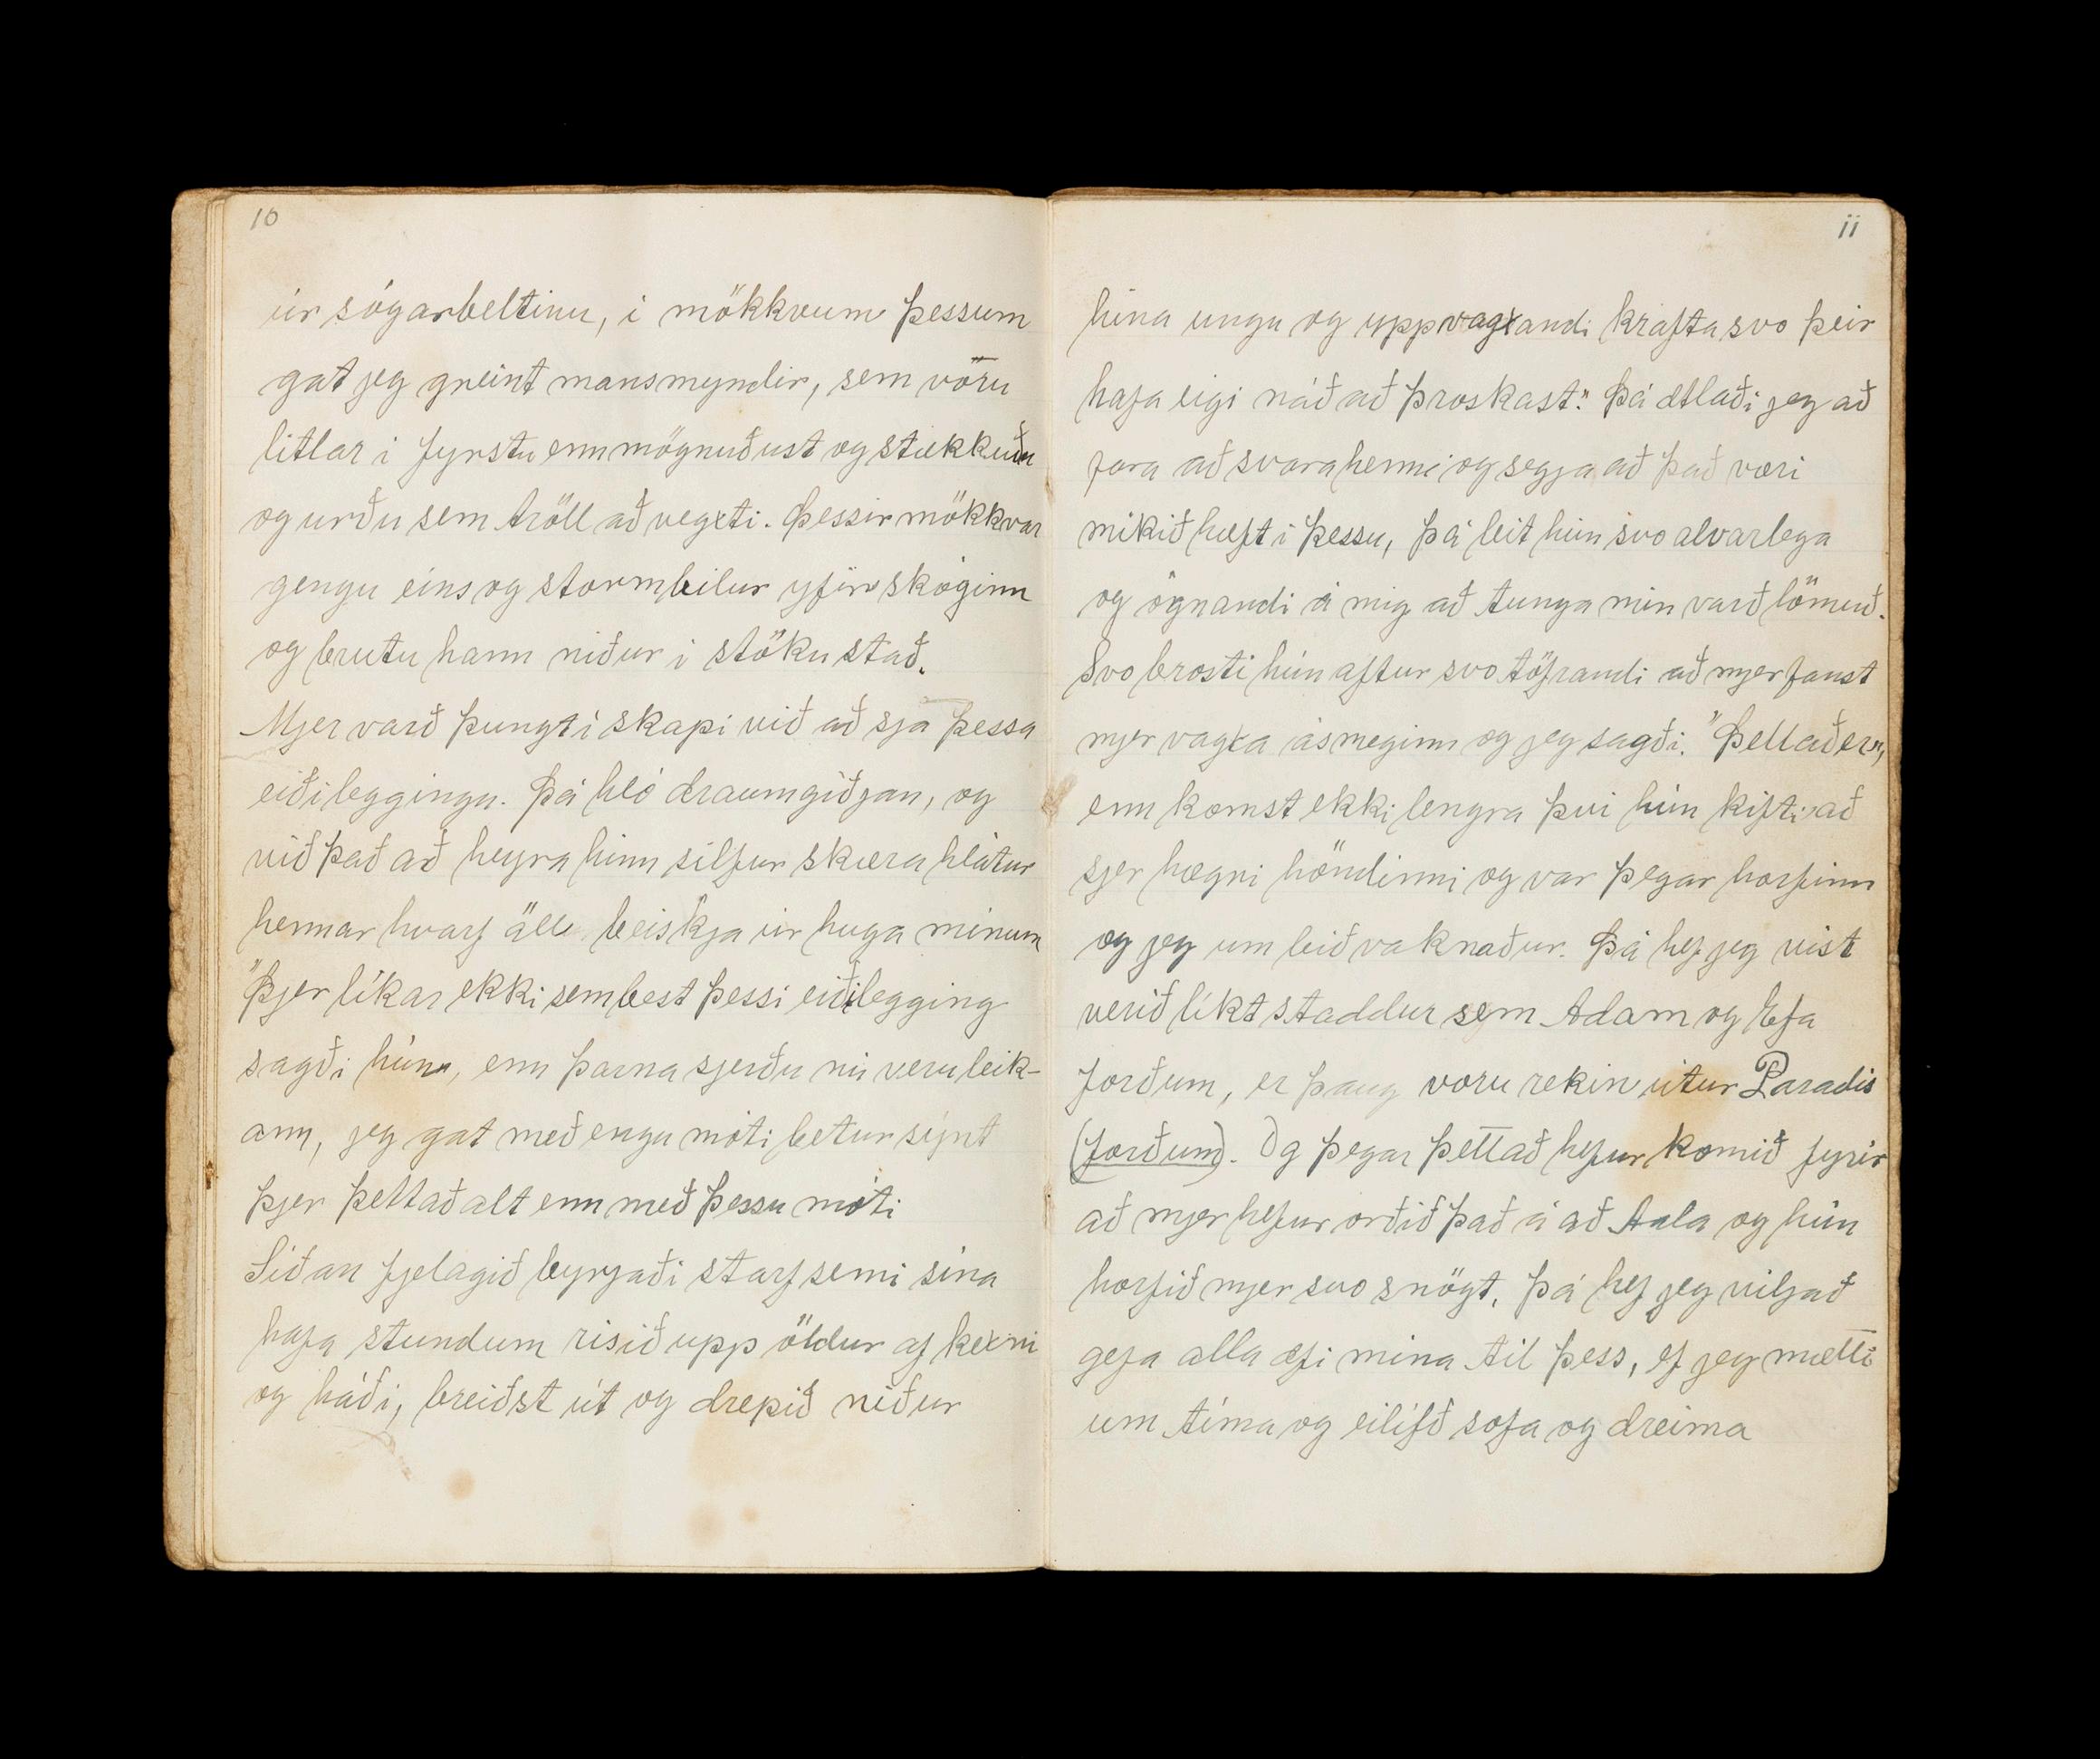 10
úr skógarbeltinu, í mökkvum þessum
gat jeg greint mansmyndir, sem vóru
litlar í fyrstu enn mögnuðust og stækkuðu
og urðu sem tröll að vegsti. Þessir mökkvar
gengu eins og stormbilur yfir skóginn
og brutu hann niður í stöku stað.
Mjer varð þungt í skapi við að sjá þessa
eiðileggingu. Þá hló draumgiðjan, og
við það að heyra hinn silfur skæra hlátur
hennar hvarf öll beiskja úr huga mínum
"Þjer líkar ekki sem best þessi eiðilegging
sagði hún", enn þarna sjerðu nú veruleik-
ann, jeg gat með engu móti betur sýnt
þjer þettað alt enn með þessu móti
Síðan fjelagið byrjaði starfsemi sína
hafa stundum risið upp öldur af kexni
og háði, breiðst út og drepið niður
11
hina ungu og uppvagxandi krafta svo þeir
hafa eigi náð að þroskast." Þá ætlaði jeg að
fara að svara henni og segja að það væri
mikið hæft í þessu, þá leit hún svo alvarlega
og ógnandi á mig að tunga mín varð lömuð.
Svo brosti hún aftur svo töfrandi að mjer fanst
mjer vagxa ásmeginn og jeg sagði. "Þettað er",
enn komst ekki lengra því hún kifti að
sjer hægri höndinni og var þegar horfinn
og jeg um leið vaknaður. Þá hef jeg víst
verið líkt staddur sem Adam og Efa
forðum, er þaug voru rekin útur Paradís
(forðum). Og þegar þettað hefur komið fyrir
að mjer hefur orðið það á að tala og hún
horfið mjer svo snögt, þá hef jeg viljað
gefa alla æfi mína til þess, ef jeg mætti
um tíma og eilífð sofa og dreima